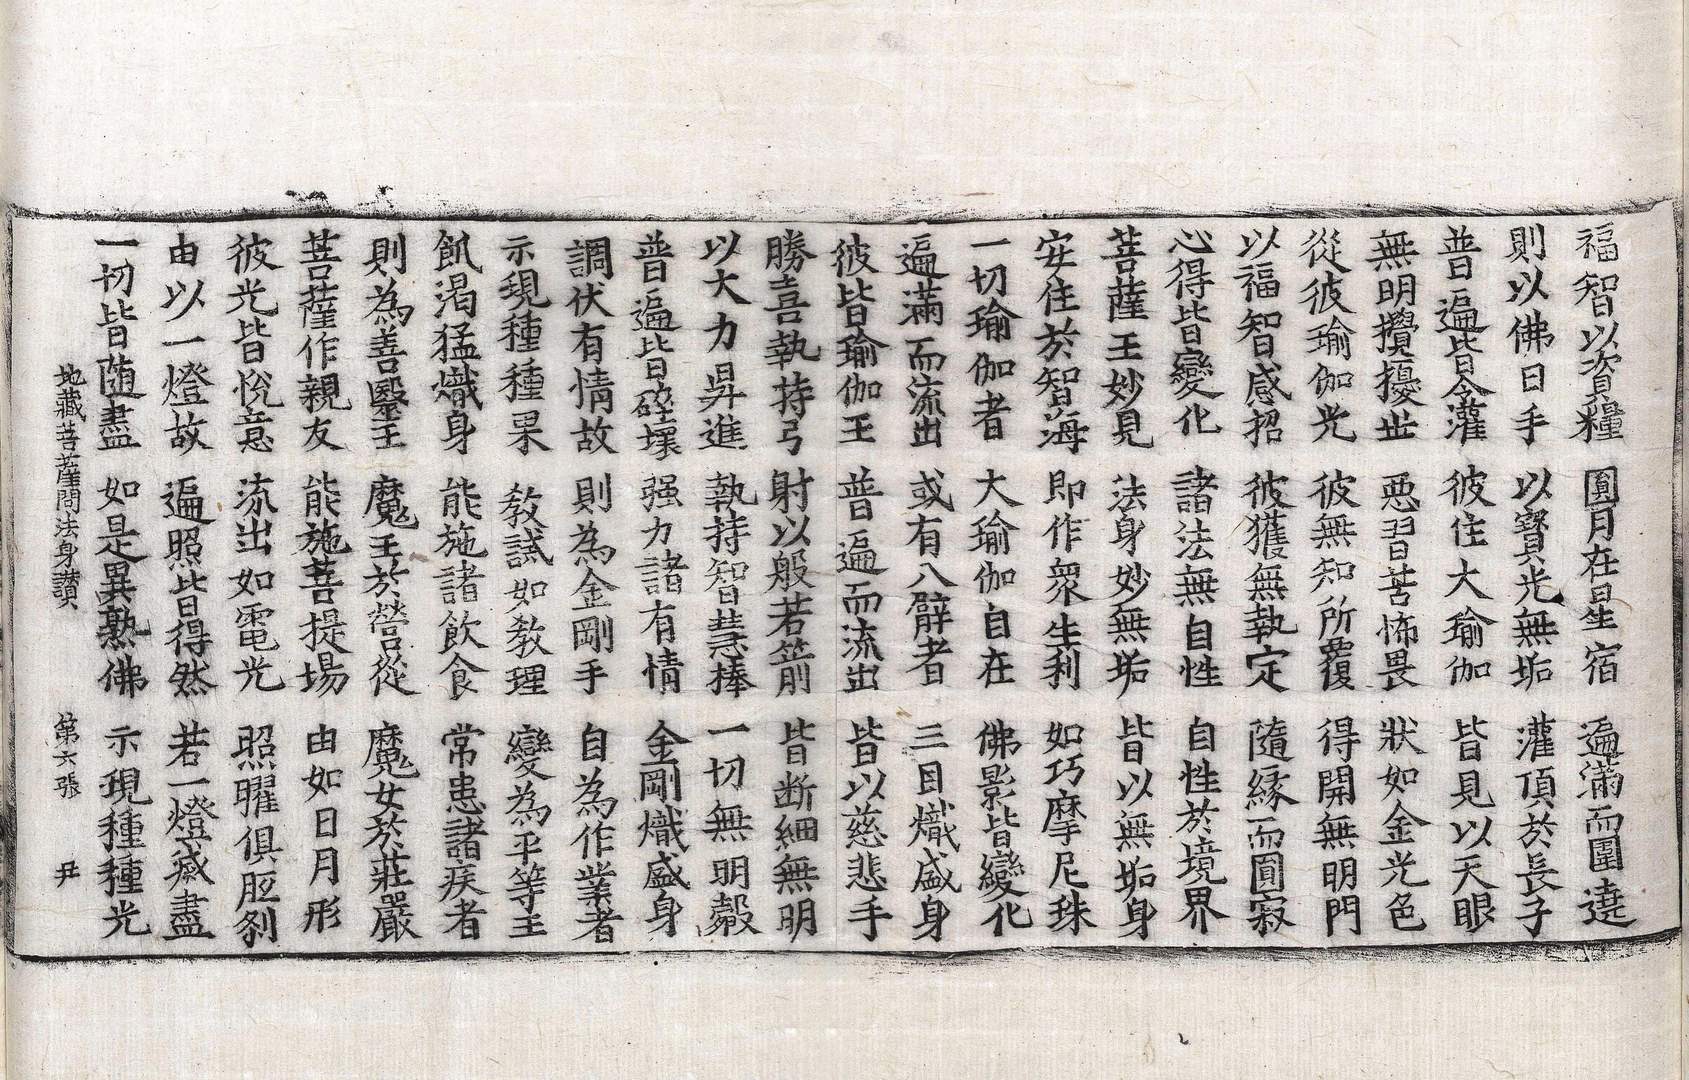 福智以資糧 圓月在星宿 遍滿而圍遶
則以佛日手 以寶光無垢 灌頂於長子
普遍皆令灌 彼住大瑜伽 皆見以天眼
無明攪擾世 惡習苦怖畏 狀如金光色
從彼瑜伽光 彼無知所覆 得開無明門
以福智感招 彼獲無執定 隨緣而圓寂
心得皆變化 諸法無自性 自性於境界
菩薩王妙見 法身妙無垢 皆以無垢身
安住於智海 即作衆生利 如巧摩尼珠
一切瑜伽者 大瑜伽自在 佛影皆變化
遍滿而流出 或有八臂者 三目熾盛身
彼皆瑜伽王 普遍而流出 皆以慈悲手
勝喜執持弓 射以般若箭 皆断細無明
以大力昇進 執持智慧捧 一切無明㲉
普遍皆碎壞 强力諸有情 金剛熾盛身
調伏有情故 則為金剛手 自為作業者
示現種種果 教試如教理 變為平等王
飢渴猛熾身 能施諸飲食 常患諸疾者
則為善毉王 魔王於營從 魔女於莊嚴
菩薩作親友 能施菩提場 由如日月形
彼光皆悅意 流出如電光 照曜俱胝刹
由以一燈故 遍照皆得然 若一燈滅盡
一切皆随盡 如是異熟佛 示現種種光
地藏菩薩問法身讚 第六張 尹